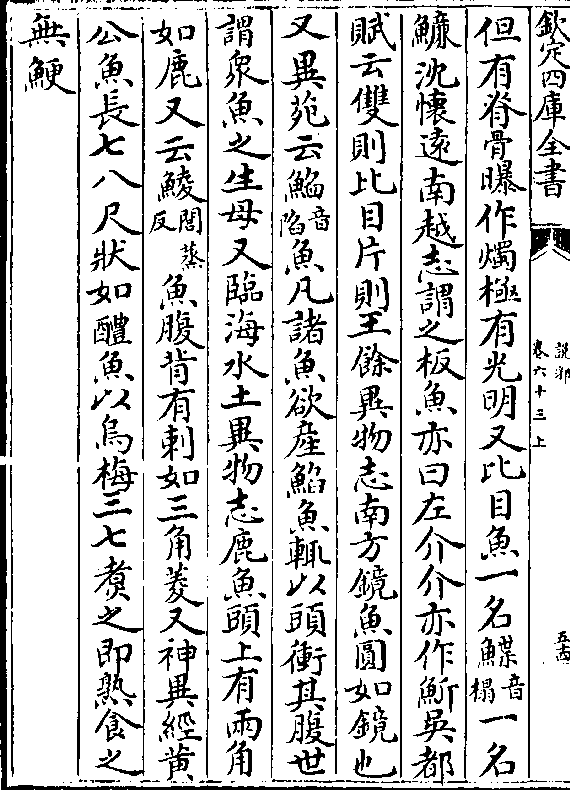 欽定四庫全書
說郛
卷六十三上
五十四
但有脊骨曝作燭極有光明又比目魚一名鰈音榻一名
鰜沈懷逺南越志謂之板魚亦曰左介介亦作魪吳都
賦云雙則比目片則王餘異物志南方鏡魚圓如鏡也
又異苑云鯩音陷魚凡諸魚欲産鮨魚輒以頭衝其腹世
謂衆魚之生母又臨海水土異物志鹿魚頭上有兩角
如鹿又云鯪閭蒸反魚腹背有刺如三角菱又神異經黄
公魚長七八尺狀如醴魚以烏梅三七煑之即熟食之
無鯁